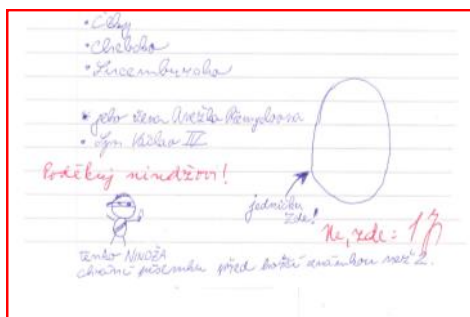 • Čechy
• Chebsko
• Lucembursko
• jeho žena Anežka Přemyslovna
• Syn Václav IV
Poděkuj nindžovi!
jedničku
zde!
Ne, zde: 1
TENTO NINDŽA
chrání písemku před horší známkou než 2.